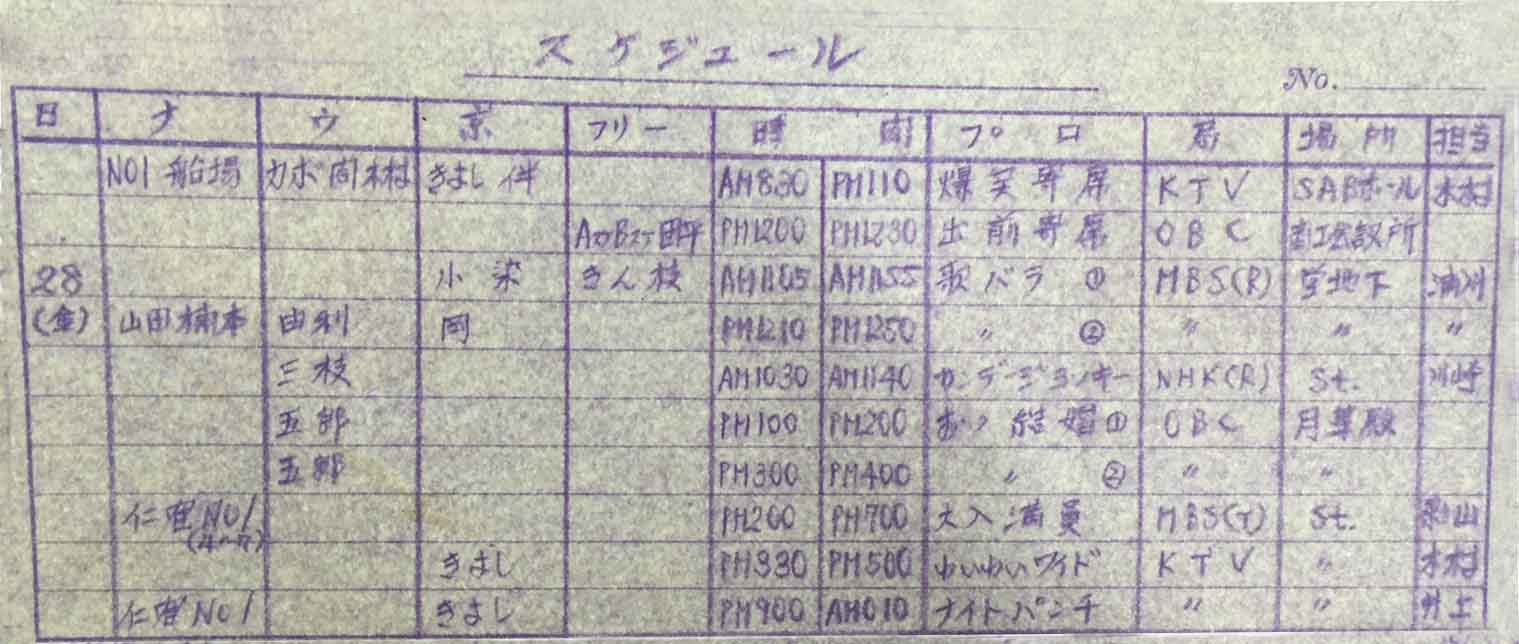 スケジュール
No.
日 ナ ウ 京 フリー 時間 プロ 局 場所 担当
NO1 船場 カボ 岡 木村 きよし 伴 AM830 PM110 爆笑寄席 KTV SABホール 木村
PM1200 PM1230 出前寄席 OBC
28 小染 きん枝 AM1155 歌バラ ① MBS(R) 堂地下
(金) 山田 楠本 由利 岡 PM1210 PM1250 〃 ② 〃 〃 〃
三枝 AM1030 AM1140 NHK(R) St. 川崎
五郎 PM100 PM200 結婚① OBC
五郎 PM300 PM400 〃 ② 〃 〃
NO1 PM200 PM700 大入満員 MBS(T) St.
きよし PM330 PM500 わいわいワイド KTV 〃 木村
NO1 きよし PM900 AM010 ナイトパンチ 〃 〃 井上